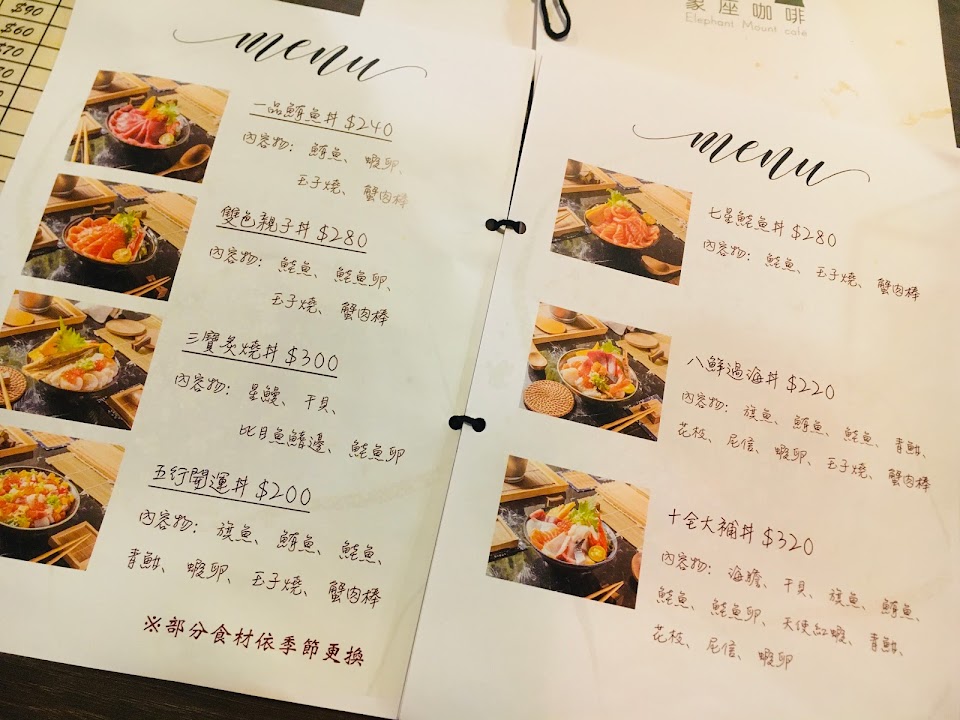 $90
$60
menu
一品鮪魚丼 $240
內容物: 鮪魚、蝦卵、
玉子燒、蟹肉棒
雙色親子丼 $280
內容物: 鮭魚、鮭魚卵、
玉子燒、蟹肉棒
三寶炙燒丼 $300
內容物: 星鰻、干貝、
比目魚鰭邊、鮭魚卵
五行開運丼 $200
內容物: 旗魚、鮪魚、鮭魚、
青魽、蝦卵、玉子燒、蟹肉棒
※部分食材依季節更換
象座咖啡
Elephant Mount cafe
menu
七星鮭魚丼 $280
內容物: 鮭魚、玉子燒、蟹肉棒
八鮮過海丼 $220
內容物: 旗魚、鮪魚、鮭魚、青魽、
花枝、尾信、蝦卵、玉子燒、蟹肉棒
十全大補丼 $320
內容物: 海膽、干貝、旗魚、鮪魚、
鮭魚、鮭魚卵、天使紅蝦、青魽、
花枝、尾信、蝦卵